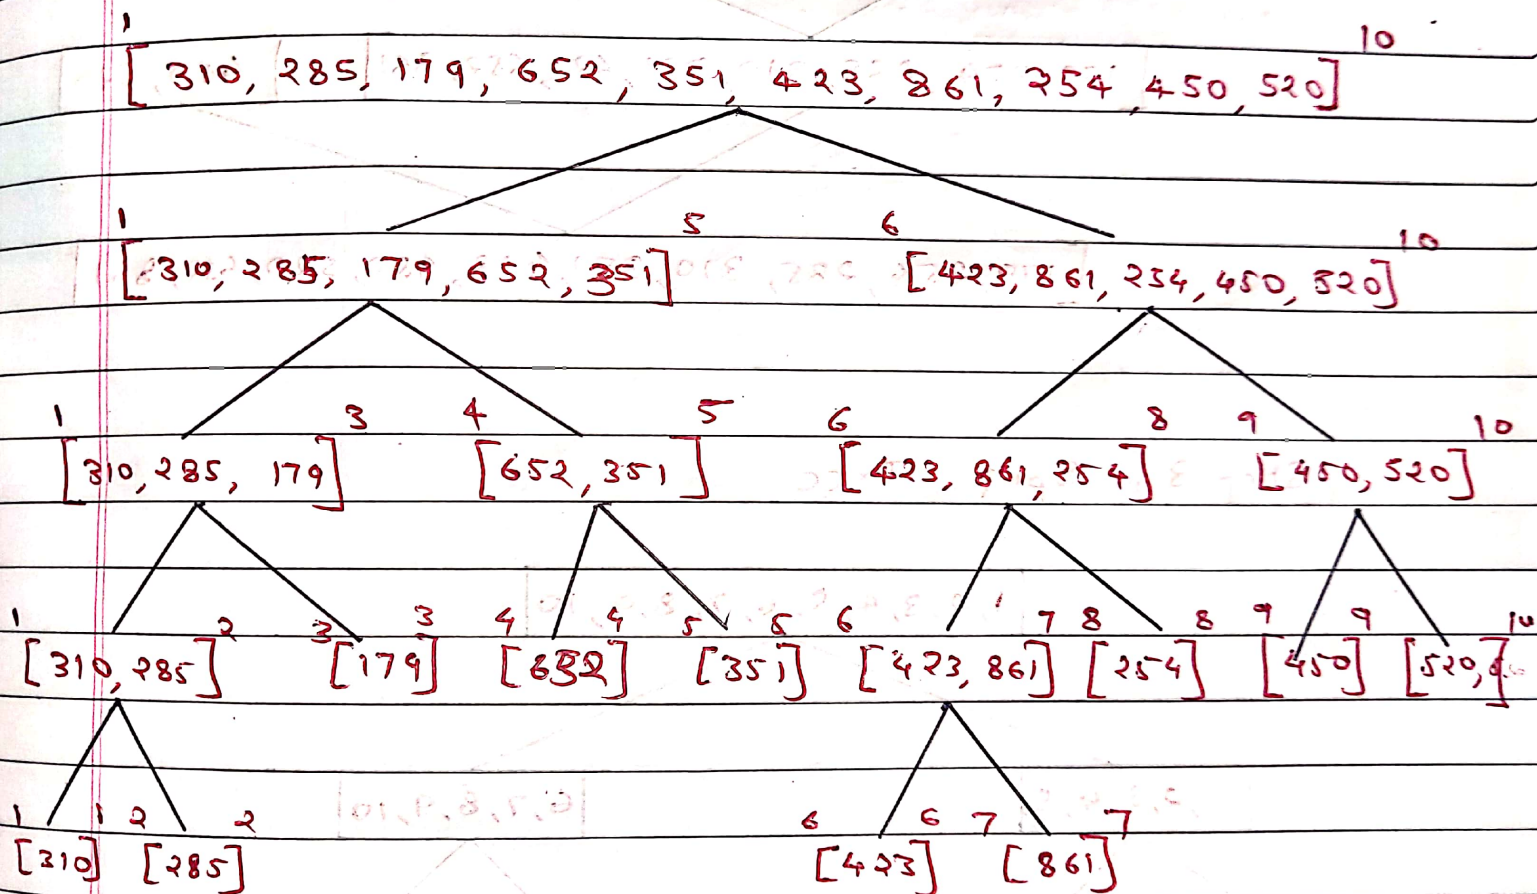 1 10
[310, 285, 179, 652, 351, 423, 861, 254, 450, 520]
1 5 6 10
[310, 285, 179, 652, 351] [423, 861, 254, 450, 520]
1 3 4 5 6 8 9 10
[310, 285, 179] [652, 351] [423, 861, 254] [450, 520]
1 2 3 3 4 4 5 5 6 7 8 8 9 9 10
[310, 285] [179] [652] [351] [423, 861] [254] [450] [520,]
1 1 2 2 6 6 7 7
[310] [285] [423] [861]